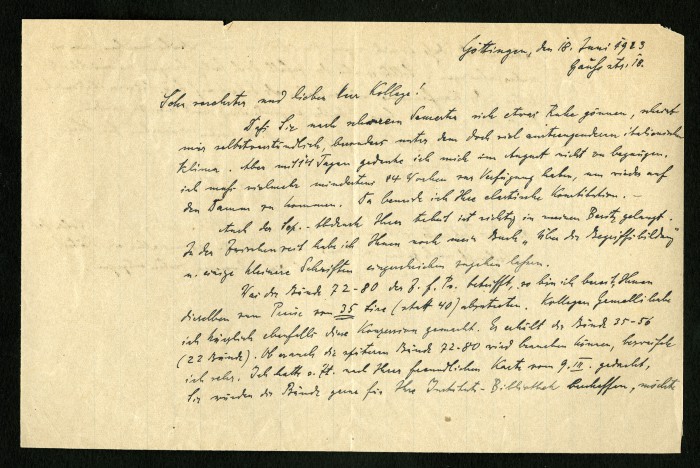 Göttingen, den 18. Juni 1923
Gaußstr. 18.
Sehr verehrter und lieber Herr Kollege!
Daß Sie nach schwerem Semester sich etwas Ruhe gönnen, scheint
mir selbstverständlich, besonders unter dem doch viel anstrengenderen italienischen
Klima. Aber mit 14 Tagen gedenke ich mich im August nicht zu begnügen.
ich muß vielmehr mindestens 4 Wochen zur Verfügung haben, um wieder auf
den Damm zu kommen. Da beneide ich Ihre elastische Konstitution. –
Auch der Sep.-Abdruck Ihrer ist richtig in meinen Besitz gelangt.
In der Zwischenzeit habe ich Ihnen noch mein Buch „Über die Begriffsbildung"
u. einige kleinere Schriften eingeschrieben zugehen lassen.
Was die Bände 72-80 der Z. f. Ps. betrifft, so bin ich bereit, Ihnen
dieselben zum Preise von 35 Lire (statt 40) abzutreten. Kollegen Gemelli habe
ich kürzlich ebenfalls diese Konzession gemacht. Er erhält die Bände 35-56
(22 Bände). Ob er auch die späteren Bände 72-80 wird brauchen können, bezweifle
ich sehr. Ich hatte nach Ihrer freundlichen Karte vom 9. gedacht,
Sie würden die Bände gerne für Ihre Instituts-Bibliothek beschaffen, möchte